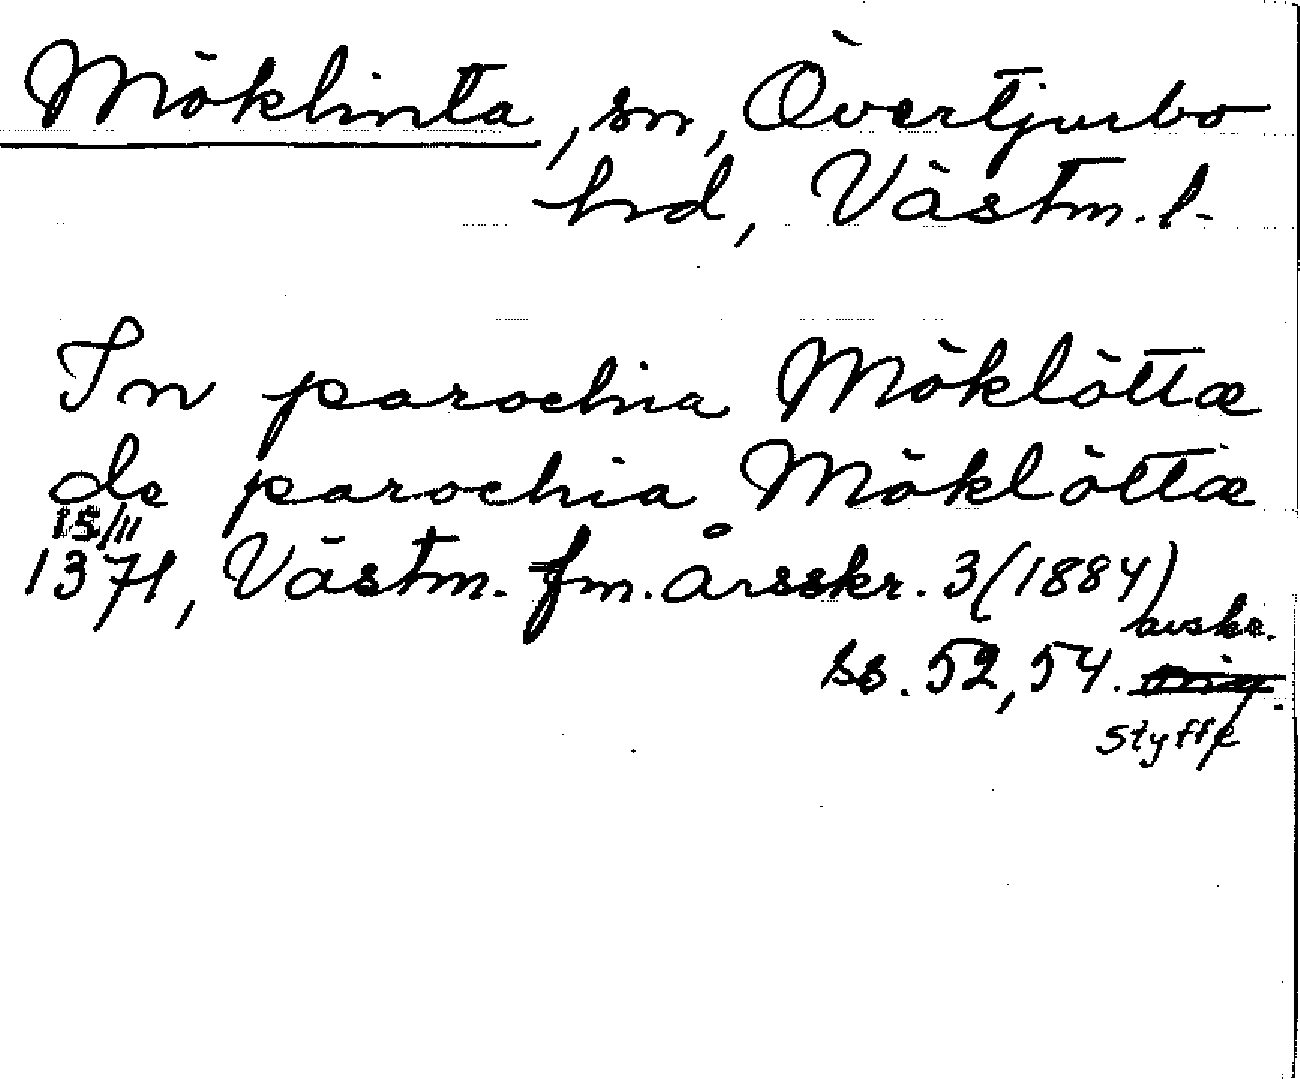 Möklinta, sn, Övertjurbo
hd, Västm. l.
In parochia Möklöttæ
de parochia Möklöttæ
15/11
1371, Västm. fm. årsskr. 3 (1884)
avskr.
ss. 52, 54.
Styffe